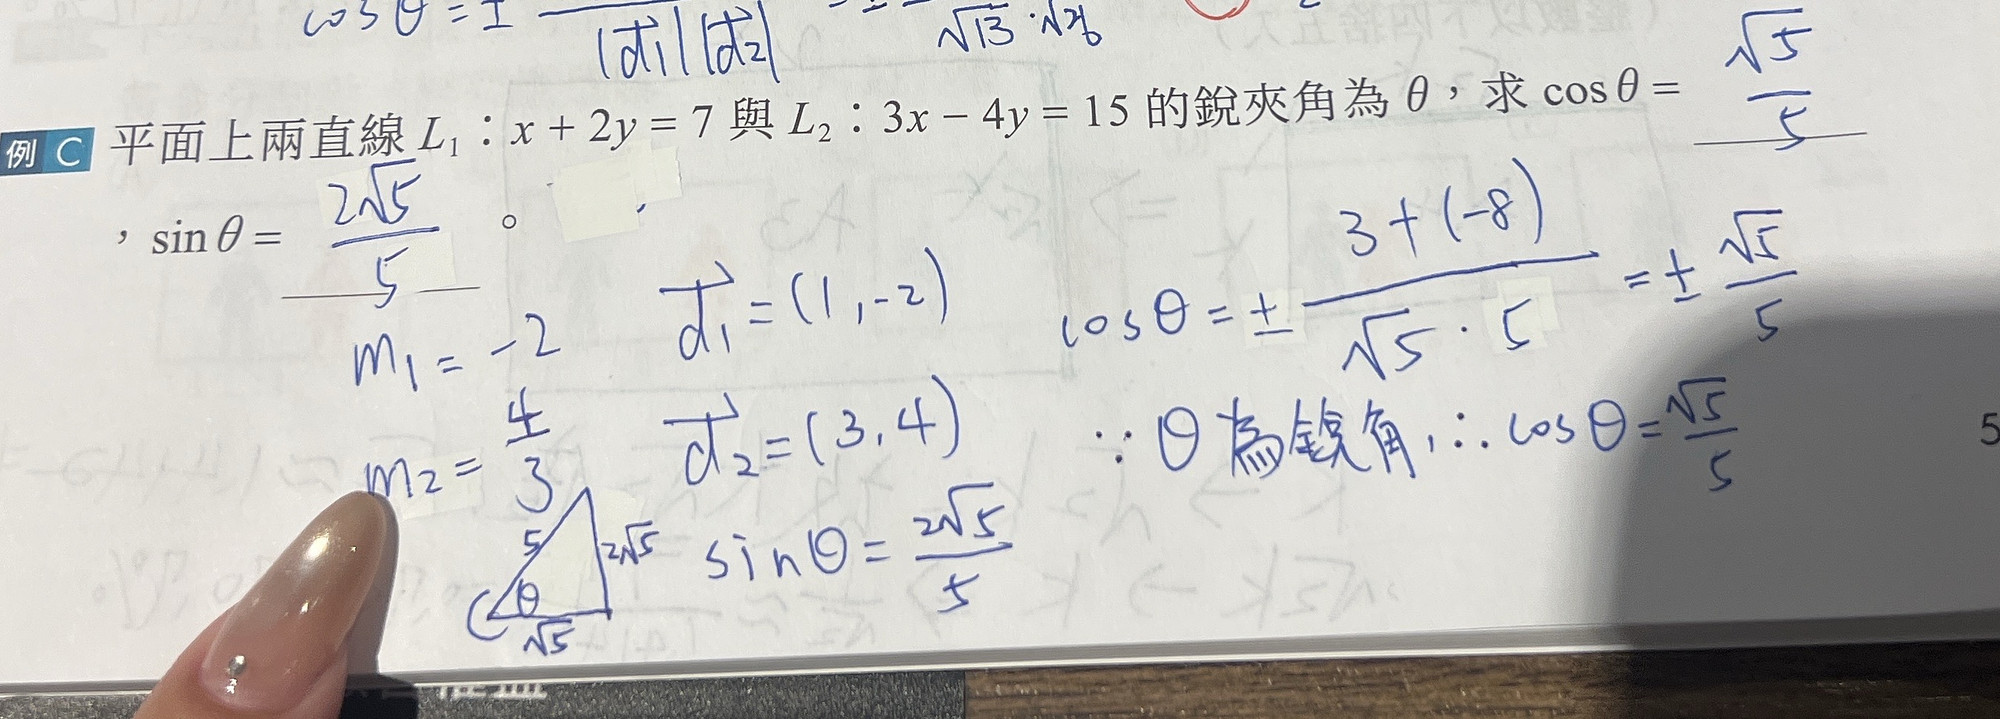 cosθ = ± / |d₁||d₂| = ± / √13 · √26
例 C 平面上兩直線 L₁：x + 2y = 7 與 L₂：3x − 4y = 15 的銳夾角為 θ，求 cosθ = √5/5
，sinθ = 2√5/5 。
m₁ = -2
d₁ = (1, -2)
cosθ = ± 3+(-8) / √5 · 5 = ± √5/5
m₂ = 4/3
d₂ = (3, 4)
∵ θ為銳角, ∴ cosθ = √5/5
5
5
2√5
θ
√5
sinθ = 2√5/5